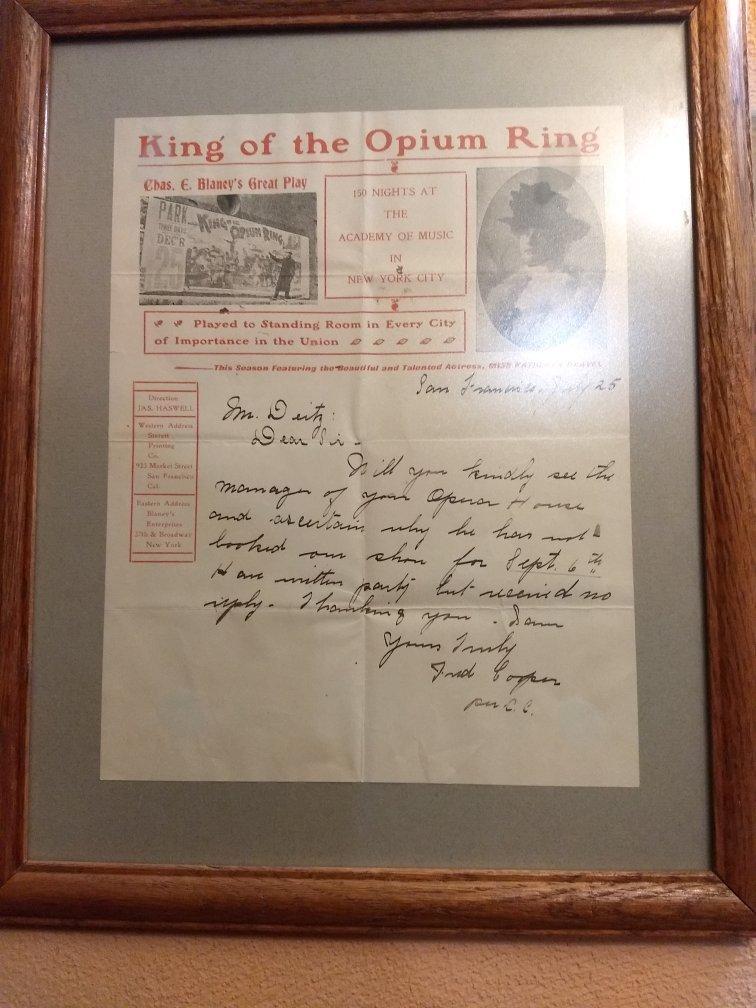 King of the Opium Ring
Chas. E. Blaney's Great Play
PARK
THREE DAYS
DEC'R
25
KING OF THE OPIUM RING
150 NIGHTS AT
THE
ACADEMY OF MUSIC
IN
NEW YORK CITY
Played to Standing Room in Every City
of Importance in the Union
This Season Featuring the Beautiful and Talented Actress, MISS
Direction
JAS. HASWELL
Western Address
Printing
Co.
923 Market Street
San Francisco
Cal.
Eastern Address
Blaney's
Enterprises
37th & Broadway
New York
San Francisco, 25
Mr. Deitz:
Dear Sir -
Will you kindly see the
manager of your Opera House
and ascertain why he has not
booked our show for Sept. 6th
Have written party but received no
reply. Thanking you. Same
Yours Truly
Fred Cooper
per C.